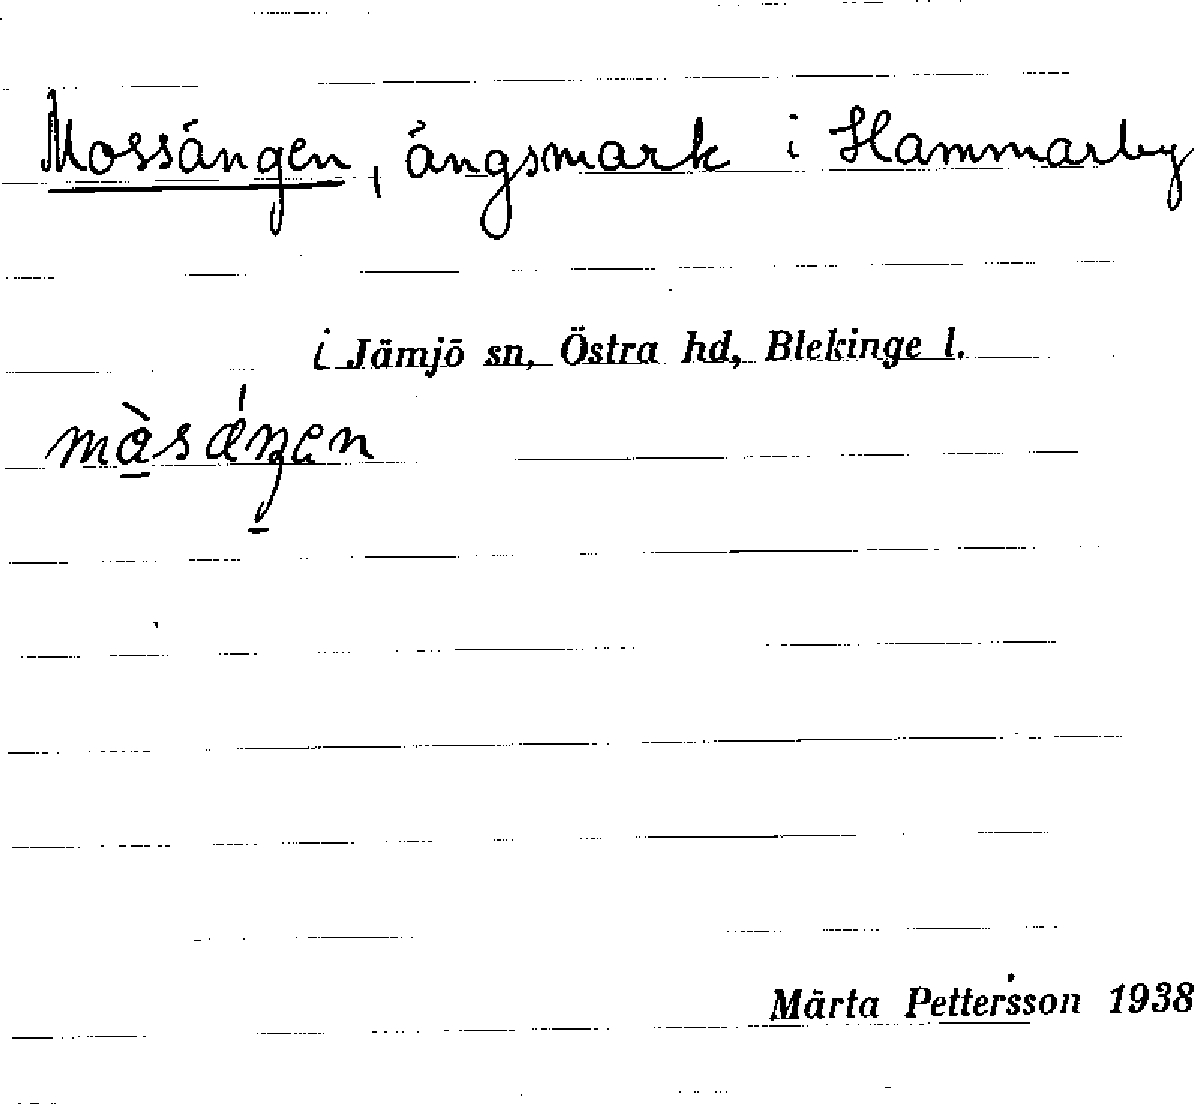 Mossängen, ängsmark i Hammarby
i Jämjö sn, Östra hd, Blekinge l.
Märta Pettersson 1938